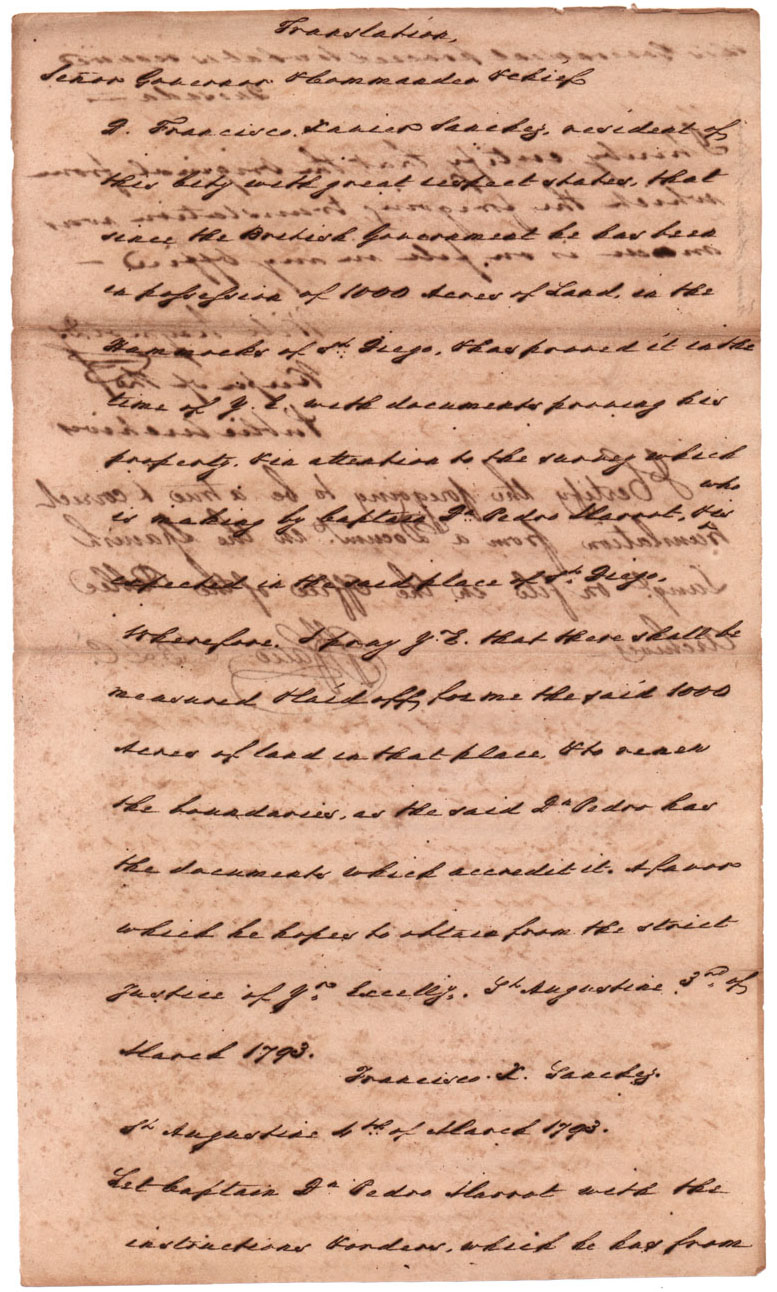 Translation,
Señor Governor & Commander & chief
D. Francisco Xavier Sanchez, resident of
this City with great respect states, that
since the British Government he has been
in possession of 1000 Acres of Land, in the
Hammocks of St. Diego, & has proved it in the
time of Y. E. with documents proving his
property, & in attention to the survey which
is making by Captain Dn. Pedro Marrot, & is
who
expected in the said place of St. Diego,
Wherefore. I pray Y. E. that there shall be
measured & laid off, for me the said 1000
Acres of land in that place, & to renew
the boundaries, as the said Dn. Pedro has
the documents which accredit it. A favor
which he hopes to obtain from the strict
Justice of Yr. Excelly. St. Augustine 3rd of
March 1793.
Francisco X. Sanchez.
St. Augustine 4th of March 1793.
Let Captain Dn. Pedro Marrot with the
instructions & orders, which he has from